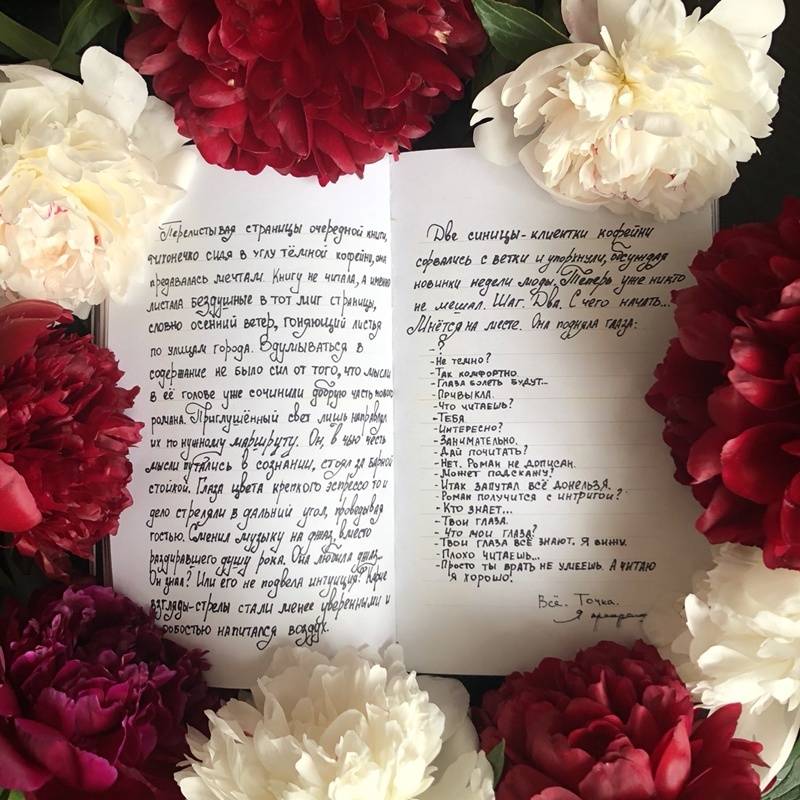 Перелистывая страницы очередной книги,
тихонечко сидя в углу тёмной кофейни, она
предавалась мечтам. Книгу не читала, а именно
листала бездушные в тот миг страницы,
словно осенний ветер, гоняющий листья
по улицам города. Вдумываться в
содержание не было сил от того, что мысли
в её голове уже сочинили добрую часть нового
романа. Приглушённый свет лишь направлял
их по нужному маршруту. Он, в чью честь
мысли путались в сознании, стоял за барной
стойкой. Глаза цвета крепкого эспрессо то и
дело стреляли в дальний угол, проведывая
гостью. Сменил музыку на джаз, вместо
раздиравшего душу рока. Она любила джаз...
Он знал? Или его не подвела интуиция? Карие
взгляды-стрелы стали менее уверенными и
робостью напитался воздух.
Две синицы-клиентки кофейни
сорвались с ветки и упорхнули, обсуждая
новинки недели моды. Теперь уже никто
не мешал. Шаг. Два. С чего начать...
Мнётся на месте. Она подняла глаза:
- ?
- Не темно?
- Так комфортно.
- Глаза болеть будут...
- Привыкла.
- Что читаешь?
- Тебя.
- Интересно?
- Занимательно.
- Дай почитать?
- Нет. Роман не дописан.
- Может подскажу?
- Итак запутал всё донельзя.
- Роман получится с интригой?
- Кто знает...
- Твои глаза.
- Что мои глаза?
- Твои глаза всё знают. Я вижу.
- Плохо читаешь...
- Просто ты врать не умеешь. А читаю
я хорошо!
Всё. Точка.
Я